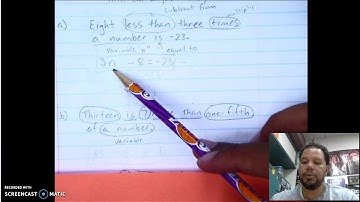 subtract from
a) Eight (less than) three (times)
a number is -23.
variable "n" equal to
3n - 8 = -23
b) Thirteen is 7 than one-fifth
of a number
variable
RECORDED WITH
SCREENCAST MATIC